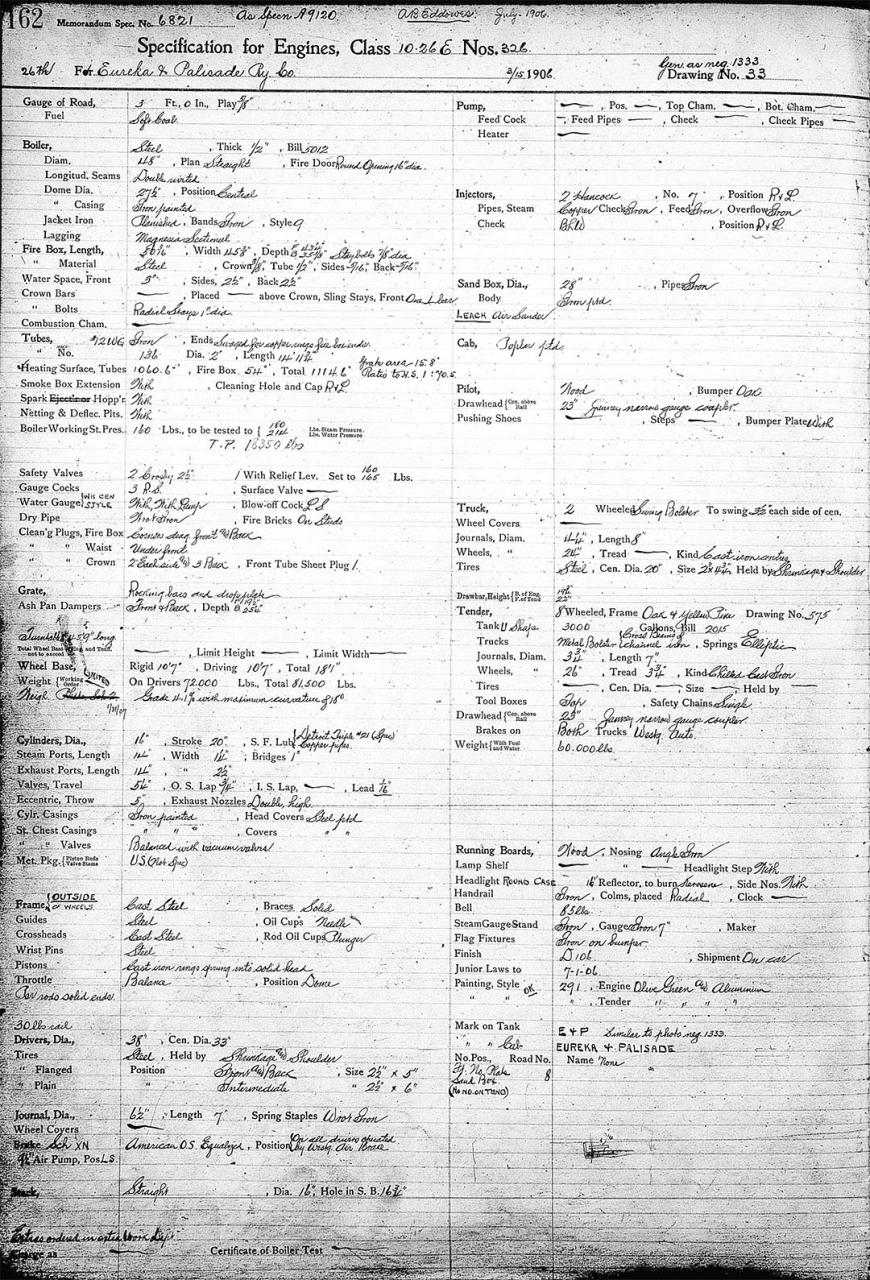 162 Memorandum Spec. No. 6821 As Specn A9120 A.B. Eddowes. July - 1906.
Specification for Engines, Class 10-26 E Nos. 326.
26th For Eureka & Palisade Ry. Co. 3/15 1906. Gen. as neg. 1333 Drawing No. 33
Gauge of Road, 3 Ft., 0 In., Play 5/8"
Fuel Soft Coal.
Boiler, Steel , Thick 1/2" , Bill 5012
Diam. 48" , Plan Straight , Fire Door Round Opening 16" dia.
Longitud. Seams Double riveted
Dome Dia. 27½ , Position Central
" Casing Iron painted
Jacket Iron Planished , Bands Iron , Style 9
Lagging Magnesia Sectional
Fire Box, Length, Width , Depth Staybolts 7/8" dia
" Material Steel , Crown 3/8", Tube 1/2", Sides 5/16", Back 5/16"
Water Space, Front 3" , Sides, 2½" , Back 2½"
Crown Bars — , Placed — above Crown, Sling Stays, Front One T bar
" Bolts Radial Stays 1" dia.
Combustion Cham. —
Tubes, #12 WG Iron , Ends Swaged for copper rings fire box ends.
" No. 136 Dia. 2" , Length
Heating Surface, Tubes 1060.6" , Fire Box 54" , Total 1114.6" Grate area 15.8" Ratio to H.S. 1:70.5
Smoke Box Extension With , Cleaning Hole and Cap R & L.
Spark Ejector or Hopp'r With
Netting & Deflec. Plts. With
Boiler Working St. Pres. 160 Lbs., to be tested to { 180 Lbs. Steam Pressure. 214 Lbs. Water Pressure
T.P. 18350 lbs
Safety Valves 2 Crosby 2½" 1 With Relief Lev. Set to 160 165 Lbs.
Gauge Cocks 3 R.S. , Surface Valve —
Water Gauge STYLE With, With Lamp , Blow-off Cock L S
Dry Pipe Wrot Iron , Fire Bricks On Studs
Clean'g Plugs, Fire Box Corners diag. front & Back
" " Waist Under front
" " Crown 2 Each side & 3 Back , Front Tube Sheet Plug 1.
Grate, Rocking bars and drop plate
Ash Pan Dampers Front & Back , Depth B.
Turntable 45'9" long.
Total Wheel Base Eng. and Tend. not to exceed — , Limit Height — , Limit Width —
Wheel Base, Rigid 10'7" , Driving 10'7" , Total 18'1"
Weight { Working Order LIMITED On Drivers 72,000 Lbs., Total 81,500 Lbs.
Weigh 1/31/07 Grade 4.1% with maximum curvature of 18°
Cylinders, Dia., 16" , Stroke 20" , S. F. Lub. { Detroit Triple #21 (Spec) Copper pipes.
Steam Ports, Length 14" , Width 1¼" , Bridges 1"
Exhaust Ports, Length 14" , " 2½"
Valves, Travel 5¼" , O. S. Lap 3/4" , I. S. Lap, — , Lead 1/16"
Eccentric, Throw 5" , Exhaust Nozzles Double, high.
Cylr. Casings Iron painted , Head Covers Steel ptd
St. Chest Casings " " , Covers " "
" " Valves Balanced with vacuum valves
Met. Pkg. { Piston Rods Valve Stems U.S. (Not Spec)
Frame, (OUTSIDE OF WHEELS. Cast Steel , Braces Solid
Guides Steel , Oil Cups Needle
Crossheads Cast Steel , Rod Oil Cups Plunger
Wrist Pins Steel
Pistons Cast iron rings sprung into solid head
Throttle Balance , Position Dome
Par rods solid ends.
30 lbs rail
Drivers, Dia., 38" , Cen. Dia. 33"
Tires Steel , Held by Shrinkage & Shoulder
" Flanged Position Front & Back , Size 2½" × 5"
" Plain " Intermediate " 2½" × 6"
Journal, Dia., 6½" , Length 7" , Spring Staples Wrot Iron
Wheel Covers —
Brake Sch XN American O.S. Equalized , Position On all drivers operated by Westg. Air Brake
9½" Air Pump, Pos. L.S.
Stack, Straight , Dia. 16", Hole in S. B. 16¾"
Extras ordered in extra Work Dept.
Charge as — Certificate of Boiler Test —
Pump, — , Pos. — , Top Cham. — , Bot. Cham. —
Feed Cock — , Feed Pipes — , Check — , Check Pipes —
Heater —
Injectors, 2 Hancock , No. 7 , Position R & L.
Pipes, Steam Copper Check Iron , Feed Iron , Overflow Iron
Check BLW , Position R & L.
Sand Box, Dia., 28" , Pipes Iron
Body Iron ptd.
LEACH Air Sander
Cab, Poplar ptd.
Pilot, Wood , Bumper Oak
Drawhead { Cen. above Rail 23" Janney narrow gauge coupler.
Pushing Shoes — , Steps — , Bumper Plate With
Truck, 2 Wheeled Swing Bolster To swing 3½" each side of cen.
Wheel Covers —
Journals, Diam. , Length 8"
Wheels, " 24" , Tread — , Kind Cast iron centre
Tires Steel , Cen. Dia. 20" , Size , Held by Shrinkage & Shoulder
Drawbar, Height { B. of Eng. F. of Tend
Tender, 8 Wheeled, Frame Oak & Yellow Pine Drawing No. 575
Tank U Shape 3000 Gallons, Bill 2015
Trucks Metal Bolster { Cross Beams & channel iron , Springs Elliptic
Journals, Diam. 3¾" , Length 7"
Wheels, " 26" , Tread , Kind Chilled Cast Iron
Tires — , Cen. Dia. — , Size — , Held by —
Tool Boxes Top , Safety Chains Single
Drawhead { Cen. above Rail 23" Janney narrow gauge coupler.
Brakes on Both Trucks Westg. Auto.
Weight { With Fuel and Water 60.000 lbs.
Running Boards, Wood , Nosing Angle Iron
Lamp Shelf — " — Headlight Step With
Headlight ROUND CASE 14" Reflector, to burn kerosene , Side Nos. With
Handrail Iron , Colms, placed Radial , Clock —
Bell 85 lbs.
Steam Gauge Stand Iron , Gauge Iron 7" , Maker
Flag Fixtures Iron on bumper.
Finish D 106 , Shipment On car
Junior Laws to 7-1-06.
Painting, Style OK 291 , Engine Olive Green & Aluminium
" " " , Tender " " " "
Mark on Tank E & P Similar to photo neg. 1333.
" " Cab EUREKA & PALISADE
No. Pos., Road No. Name None "
Ft. No. Plate
Sand Box 8
(No NO. ON TEND)